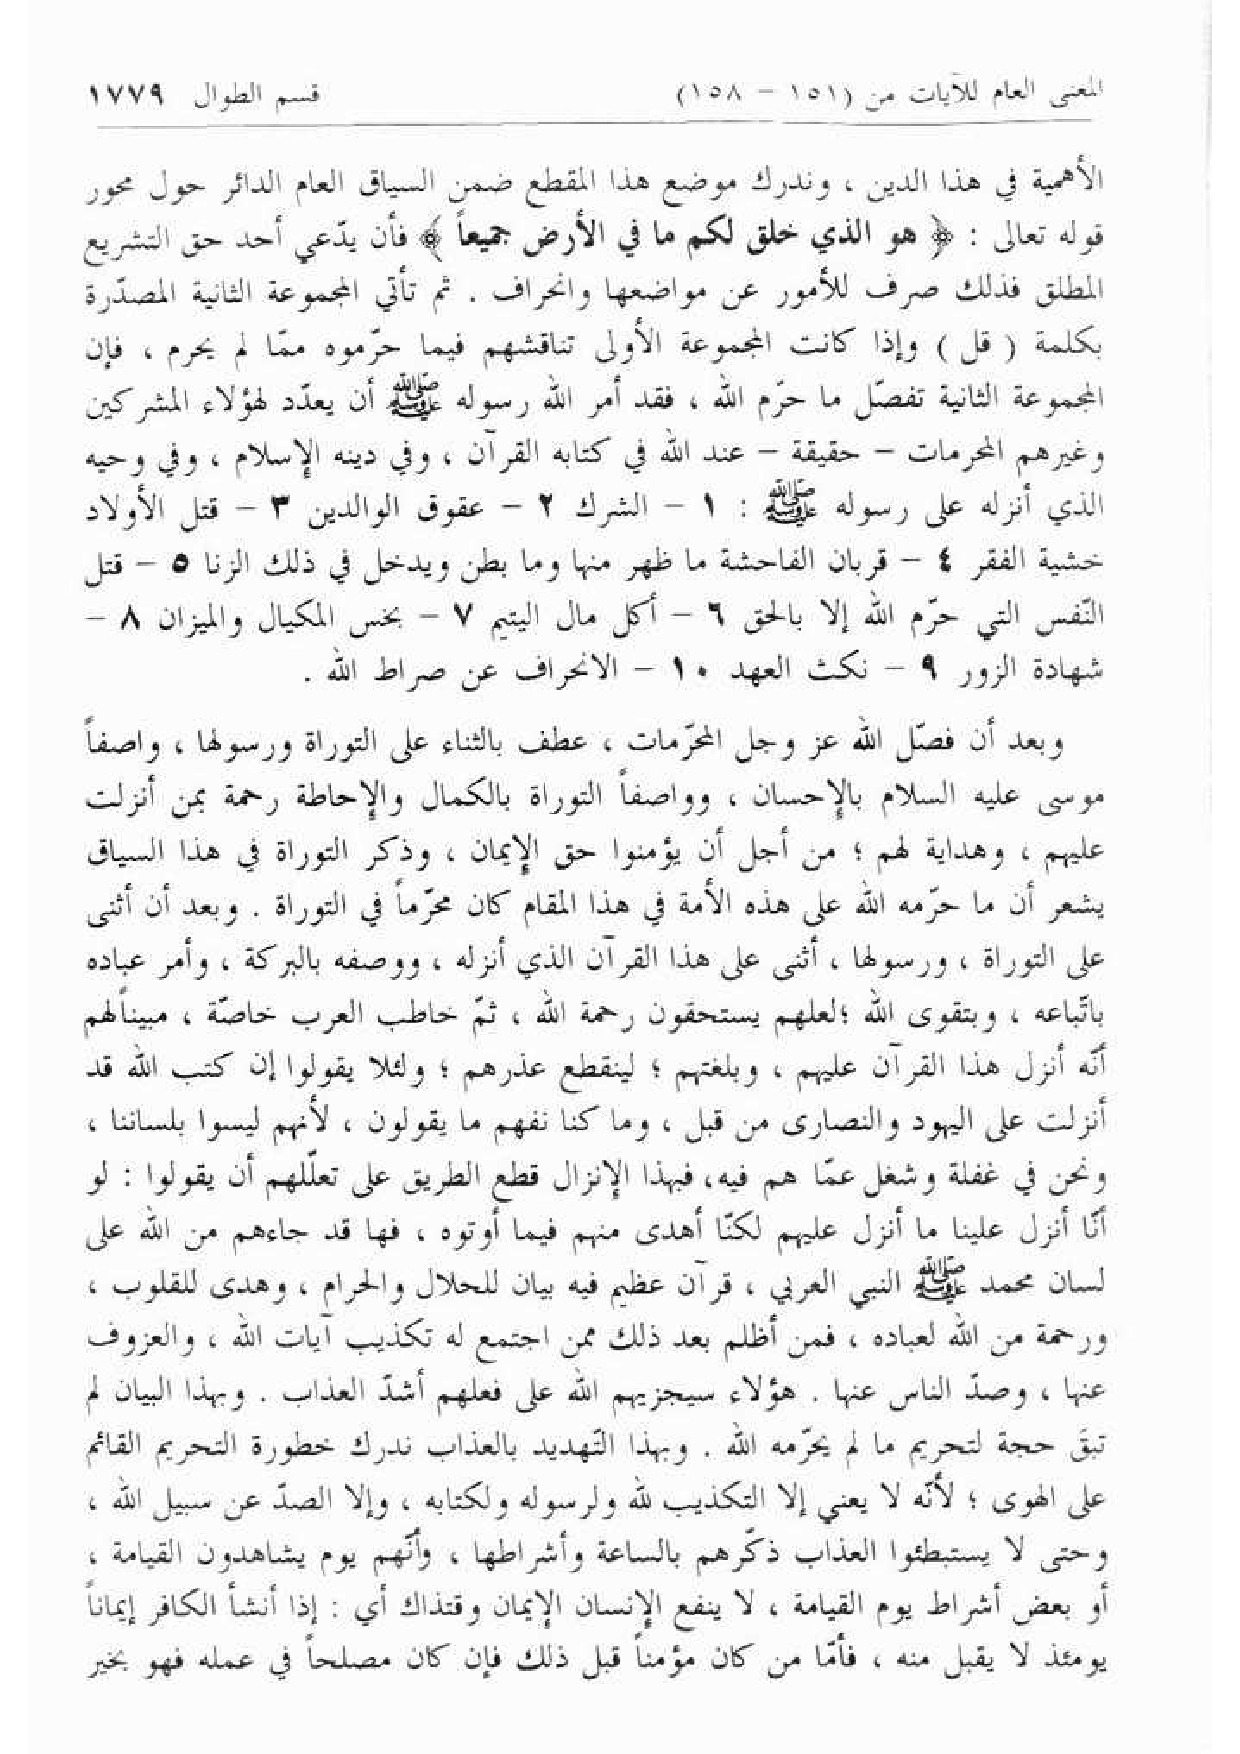 المعنى العام للآيات من (١٥١ – ١٥٨) قسم الطوال ١٧٧٩
الأهمية في هذا الدين ، وندرك موضع هذا المقطع ضمن السياق العام الدائر حول محور
قوله تعالى : ﴿ هو الذي خلق لكم ما في الأرض جميعاً ﴾ فأن يدّعي أحد حق التشريع
المطلق فذلك صرف للأمور عن مواضعها وانحراف . ثم تأتي المجموعة الثانية المصدّرة
بكلمة ( قل ) وإذا كانت المجموعة الأولى تناقشهم فيما حرّموه ممّا لم يحرم ، فإن
المجموعة الثانية تفصّل ما حرّم الله ، فقد أمر الله رسوله ﷺ أن يعدّد لهؤلاء المشركين
وغيرهم المحرمات – حقيقة – عند الله في كتابه القرآن ، وفي دينه الإسلام ، وفي وحيه
الذي أنزله على رسوله ﷺ : ١ – الشرك ٢ – عقوق الوالدين ٣ – قتل الأولاد
خشية الفقر ٤ – قربان الفاحشة ما ظهر منها وما بطن ويدخل في ذلك الزنا ٥ – قتل
النّفس التي حرّم الله إلا بالحق ٦ – أكل مال اليتيم ٧ – بخس المكيال والميزان ٨ –
شهادة الزور ٩ – نكث العهد ١٠ – الانحراف عن صراط الله .
وبعد أن فصّل الله عز وجل المحرّمات ، عطف بالثناء على التوراة ورسولها ، واصفاً
موسى عليه السلام بالإحسان ، وواصفاً التوراة بالكمال والإحاطة رحمة بمن أنزلت
عليهم ، وهداية لهم ؛ من أجل أن يؤمنوا حق الإيمان ، وذكر التوراة في هذا السياق
يشعر أن ما حرّمه الله على هذه الأمة في هذا المقام كان محرّماً في التوراة . وبعد أن أثنى
على التوراة ، ورسولها ، أثنى على هذا القرآن الذي أنزله ، ووصفه بالبركة ، وأمر عباده
باتّباعه ، وبتقوى الله ؛لعلهم يستحقون رحمة الله ، ثمّ خاطب العرب خاصّة ، مبيناًلهم
أنّه أنزل هذا القرآن عليهم ، وبلغتهم ؛ لينقطع عذرهم ؛ ولئلا يقولوا إن كتب الله قد
أنزلت على اليهود والنصارى من قبل ، وما كنا نفهم ما يقولون ، لأنهم ليسوا بلساننا ،
ونحن في غفلة وشغل عمّا هم فيه، فبهذا الإنزال قطع الطريق على تعلّلهم أن يقولوا : لو
أنّا أنزل علينا ما أنزل عليهم لكنّا أهدى منهم فيما أوتوه ، فها قد جاءهم من الله على
لسان محمد ﷺ النبي العربي ، قرآن عظيم فيه بيان للحلال والحرام ، وهدى للقلوب ،
ورحمة من الله لعباده ، فمن أظلم بعد ذلك ممن اجتمع له تكذيب آيات الله ، والعزوف
عنها ، وصدّ الناس عنها . هؤلاء سيجزيهم الله على فعلهم أشدّ العذاب . وبهذا البيان لم
تبقَ حجة لتحريم ما لم يحرّمه الله . وبهذا التّهديد بالعذاب ندرك خطورة التحريم القائم
على الهوى ؛ لأنّه لا يعني إلا التكذيب لله ولرسوله ولكتابه ، وإلا الصدّ عن سبيل الله ،
وحتى لا يستبطئوا العذاب ذكّرهم بالساعة وأشراطها ، وأنّهم يوم يشاهدون القيامة ،
أو بعض أشراط يوم القيامة ، لا ينفع الإنسان الإيمان وقتذاك أي : إذا أنشأ الكافر إيماناً
يومئذ لا يقبل منه ، فأمّا من كان مؤمناً قبل ذلك فإن كان مصلحاً في عمله فهو بخير